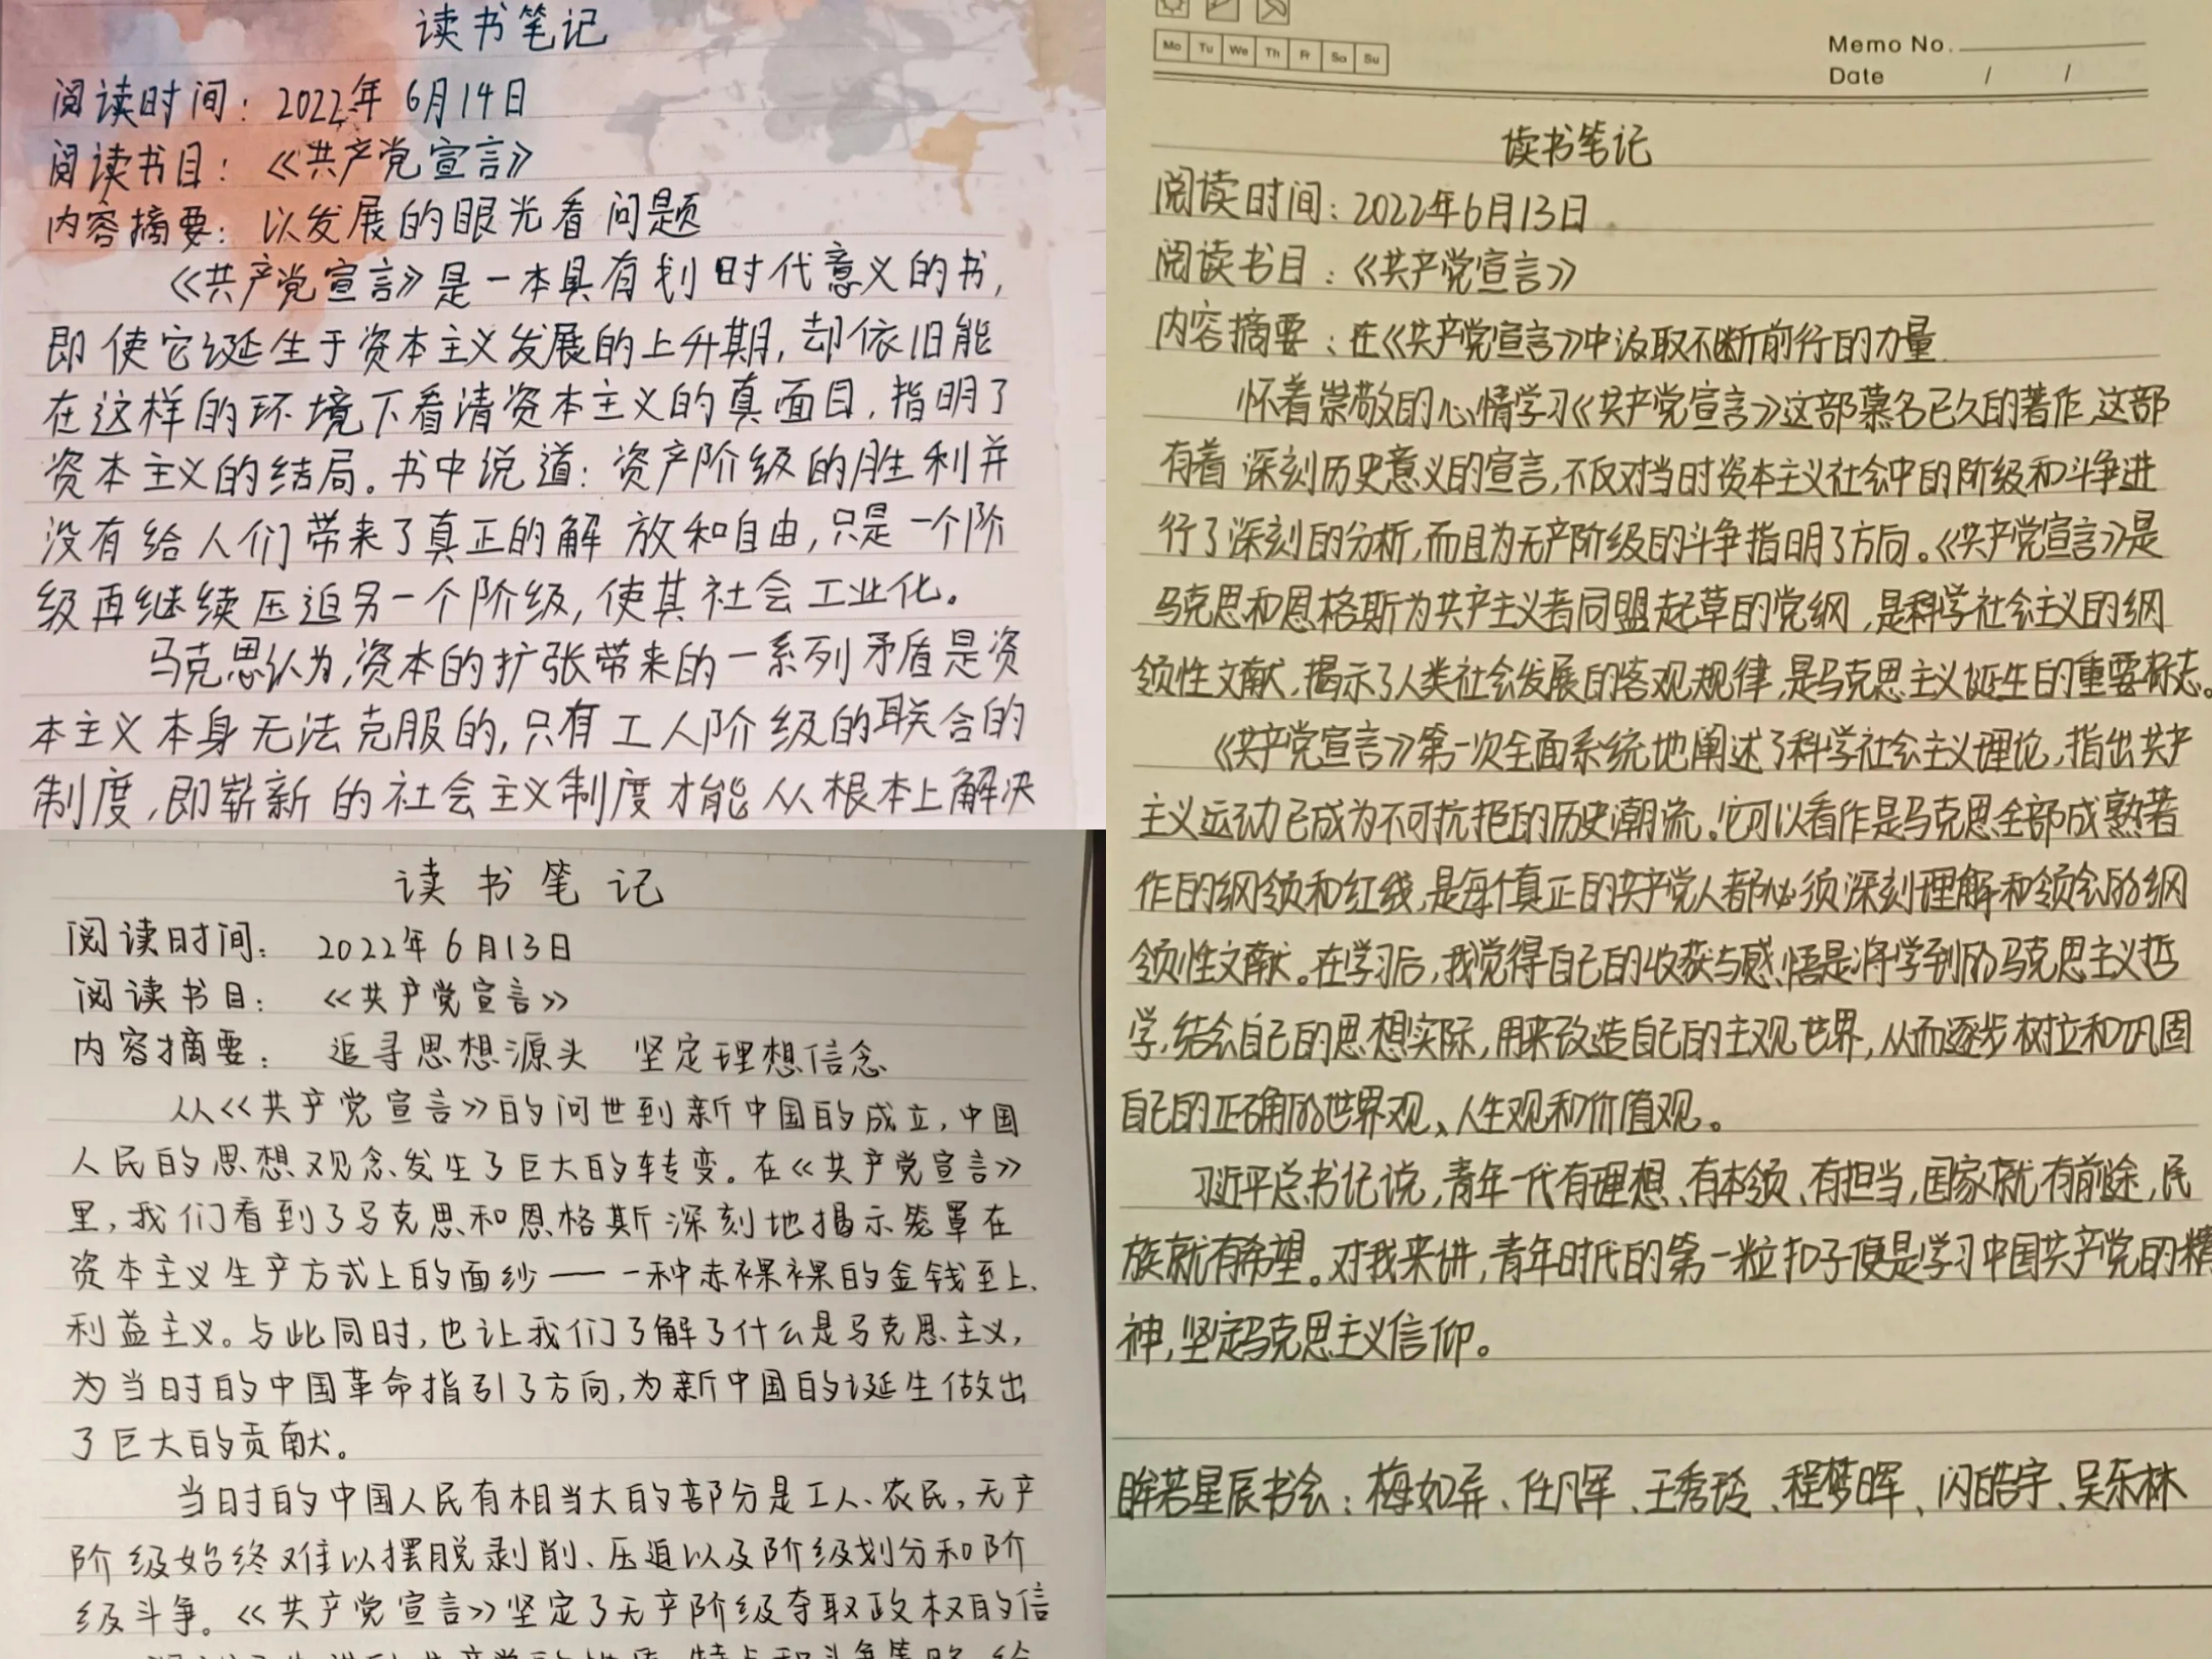 读书笔记
阅读时间：2022年6月14日
阅读书目：《共产党宣言》
内容摘要：以发展的眼光看问题
《共产党宣言》是一本具有划时代意义的书，
即使它诞生于资本主义发展的上升期，却依旧能
在这样的环境下看清资本主义的真面目，指明了
资本主义的结局。书中说道：资产阶级的胜利并
没有给人们带来了真正的解放和自由，只是一个阶
级再继续压迫另一个阶级，使其社会工业化。
马克思认为，资本的扩张带来的一系列矛盾是资
本主义本身无法克服的，只有工人阶级的联合的
制度，即崭新的社会主义制度才能从根本上解决
读书笔记
阅读时间：2022年6月13日
阅读书目：《共产党宣言》
内容摘要：追寻思想源头 坚定理想信念
从《共产党宣言》的问世到新中国的成立，中国
人民的思想观念发生了巨大的转变。在《共产党宣言》
里，我们看到了马克思和恩格斯深刻地揭示笼罩在
资本主义生产方式上的面纱——一种赤裸裸的金钱至上、
利益主义。与此同时，也让我们了解了什么是马克思主义，
为当时的中国革命指引了方向，为新中国的诞生做出
了巨大的贡献。
当时的中国人民有相当大的部分是工人、农民，无产
阶级始终难以摆脱剥削、压迫以及阶级划分和阶
级斗争。《共产党宣言》坚定了无产阶级夺取政权的信
Mo Tu We Th Fr Sa Su
Memo No.
Date / /
读书笔记
阅读时间：2022年6月13日
阅读书目：《共产党宣言》
内容摘要：在《共产党宣言》中汲取不断前行的力量
怀着崇敬的心情学习《共产党宣言》这部慕名已久的著作，这部
有着深刻历史意义的宣言，不仅对当时资本主义社会中的阶级和斗争进
行了深刻的分析，而且为无产阶级的斗争指明了方向。《共产党宣言》是
马克思和恩格斯为共产主义者同盟起草的党纲，是科学社会主义的纲
领性文献，揭示了人类社会发展的客观规律，是马克思主义诞生的重要标志。
《共产党宣言》第一次全面系统地阐述了科学社会主义理论，指出共产
主义运动已成为不可抗拒的历史潮流。它可以看作是马克思全部成熟著
作的纲领和红线，是每个真正的共产党人都必须深刻理解和领会的纲
领性文献。在学习后，我觉得自己的收获与感悟是将学到的马克思主义哲
学，结合自己的思想实际，用来改造自己的主观世界，从而逐步树立和巩固
自己的正确的世界观、人生观和价值观。
习近平总书记说，青年一代有理想、有本领、有担当，国家就有前途，民
族就有希望。对我来讲，青年时代的第一粒扣子便是学习中国共产党的精
神，坚定马克思主义信仰。
眸若星辰书会：梅如弄、任凡军、王秀玲、程梦晖、闪皓宇、吴乐林